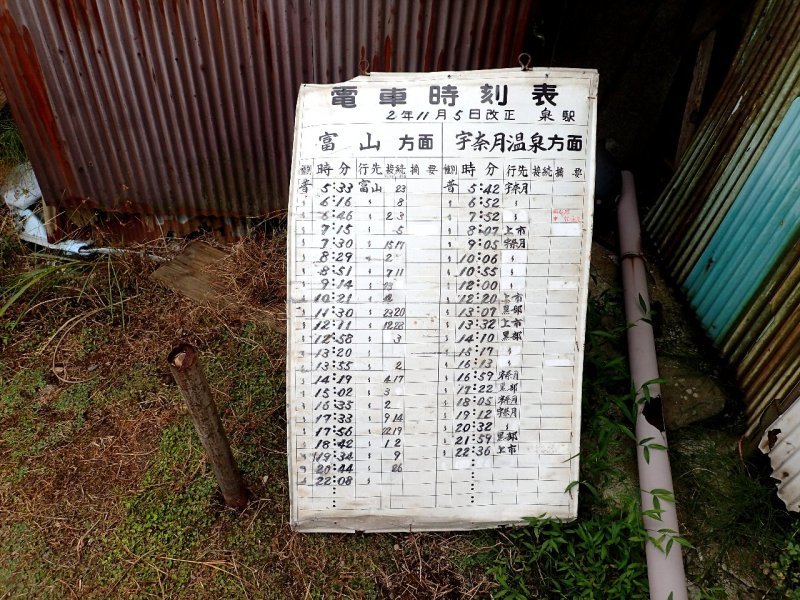 電車時刻表
2年11月5日改正 泉駅
富山方面 宇奈月温泉方面
種別 時分 行先 接続 摘要 種別 時分 行先 接続 摘要
普 5:33 富山 23 普 5:42 宇奈月
〃 6:16 〃 8 〃 6:52 〃
〃 6:46 〃 23 〃 7:52 〃
〃 7:15 〃 5 〃 8:07 上市
〃 7:30 〃 1517 〃 9:05 宇奈月
〃 8:29 〃 2 〃 10:06 〃
〃 8:51 〃 7 11 〃 10:55 〃
〃 9:14 〃 〃 12:00 〃
〃 10:21 〃 〃 12:20 上市
〃 11:30 〃 2320 〃 13:07 黒部
〃 12:11 〃 1228 〃 13:32 上市
〃 12:58 〃 3 〃 14:10 黒部
〃 13:20 〃 〃 15:17 〃
〃 13:55 〃 2 〃 16:13 〃
〃 14:19 〃 4 17 〃 16:59 宇奈月
〃 15:02 〃 3 〃 17:22 黒部
〃 16:35 〃 2 〃 18:05 宇奈月
〃 17:33 〃 9 14 〃 19:12 宇奈月
〃 17:56 〃 1219 〃 20:32 〃
〃 18:42 〃 1 2 〃 21:59 黒部
〃 19:34 〃 9 〃 22:36 上市
〃 20:44 〃 26
〃 22:08 〃